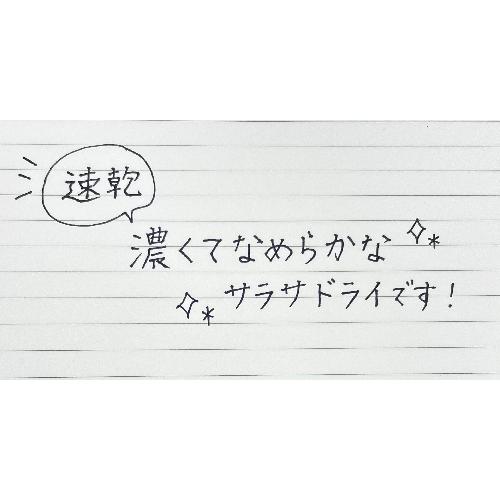 速乾
濃くてなめらかな
サラサドライです!